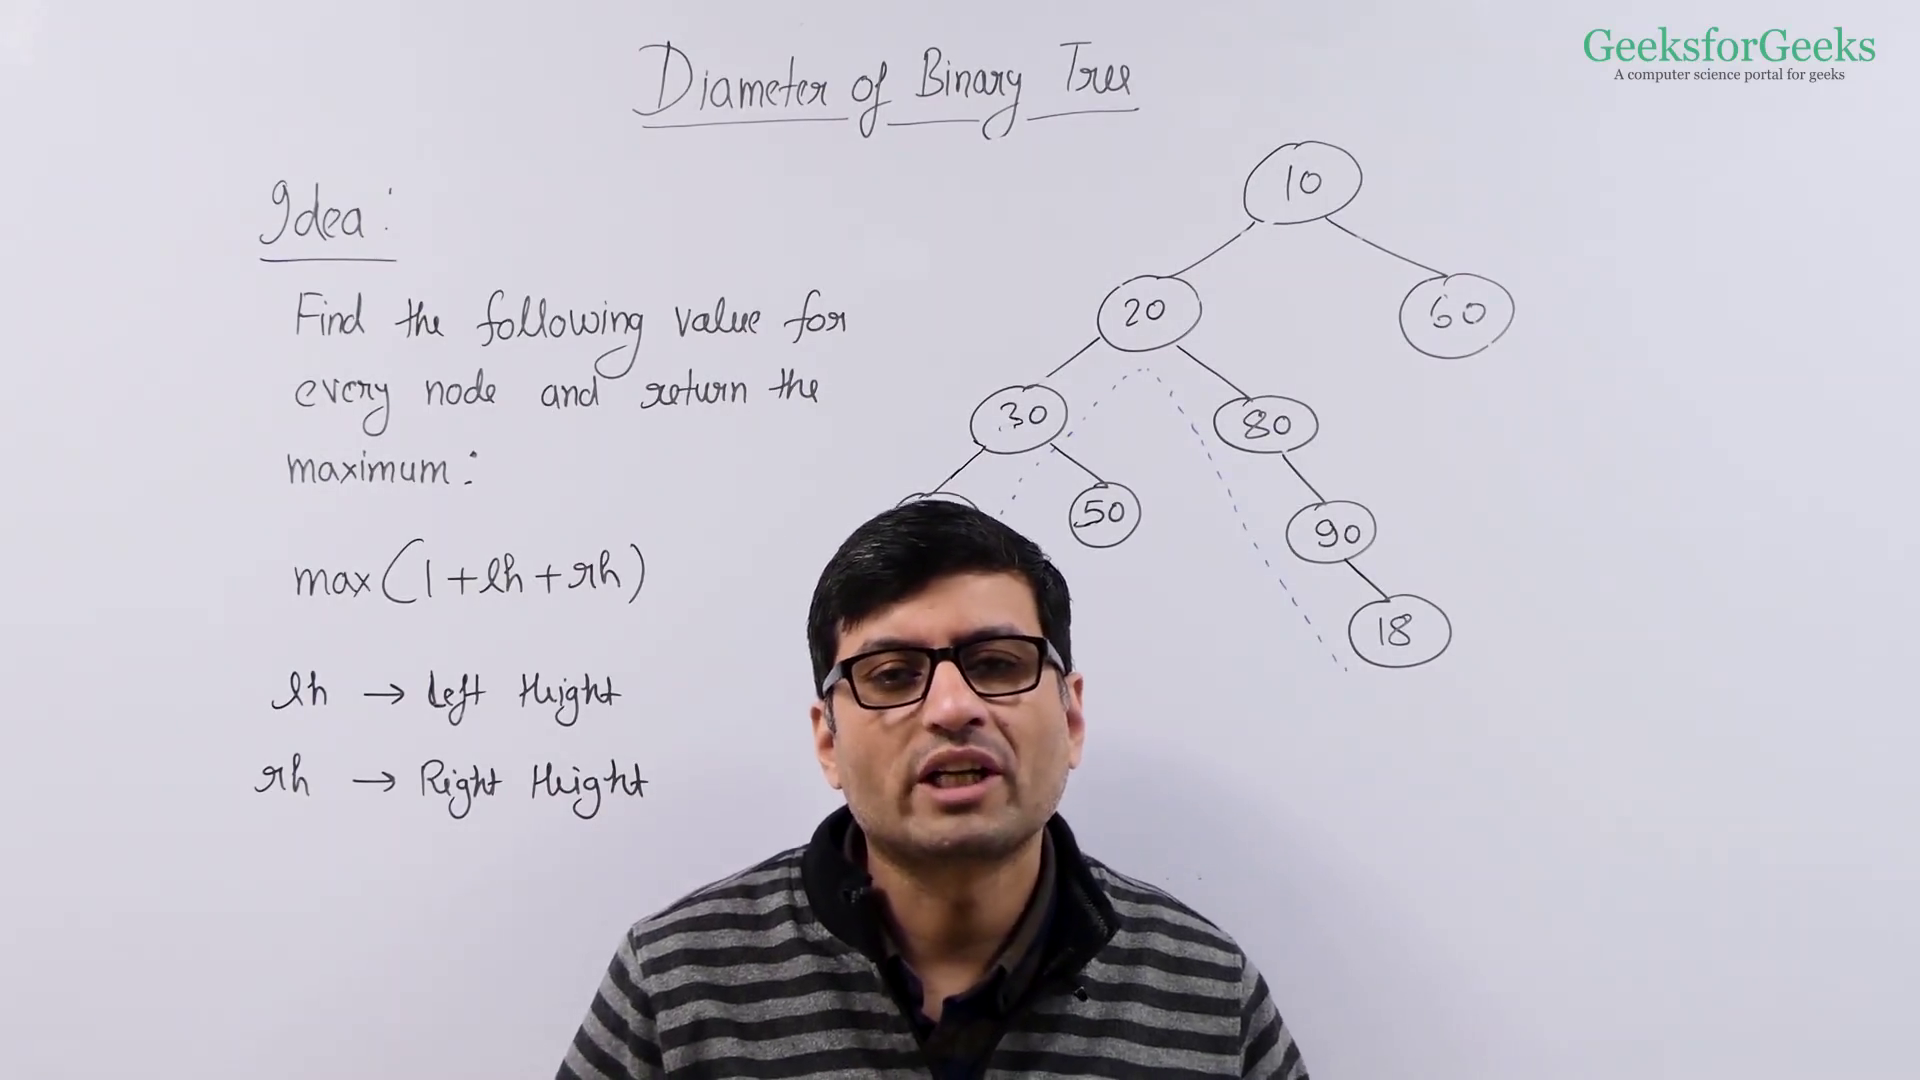 GeeksforGeeks
A computer science portal for geeks
Diameter of Binary Tree
Idea:
Find the following value for
every node and return the
maximum:
max(1+lh+rh)
lh → Left Height
rh → Right Height
10
20
60
30
80
50
90
18